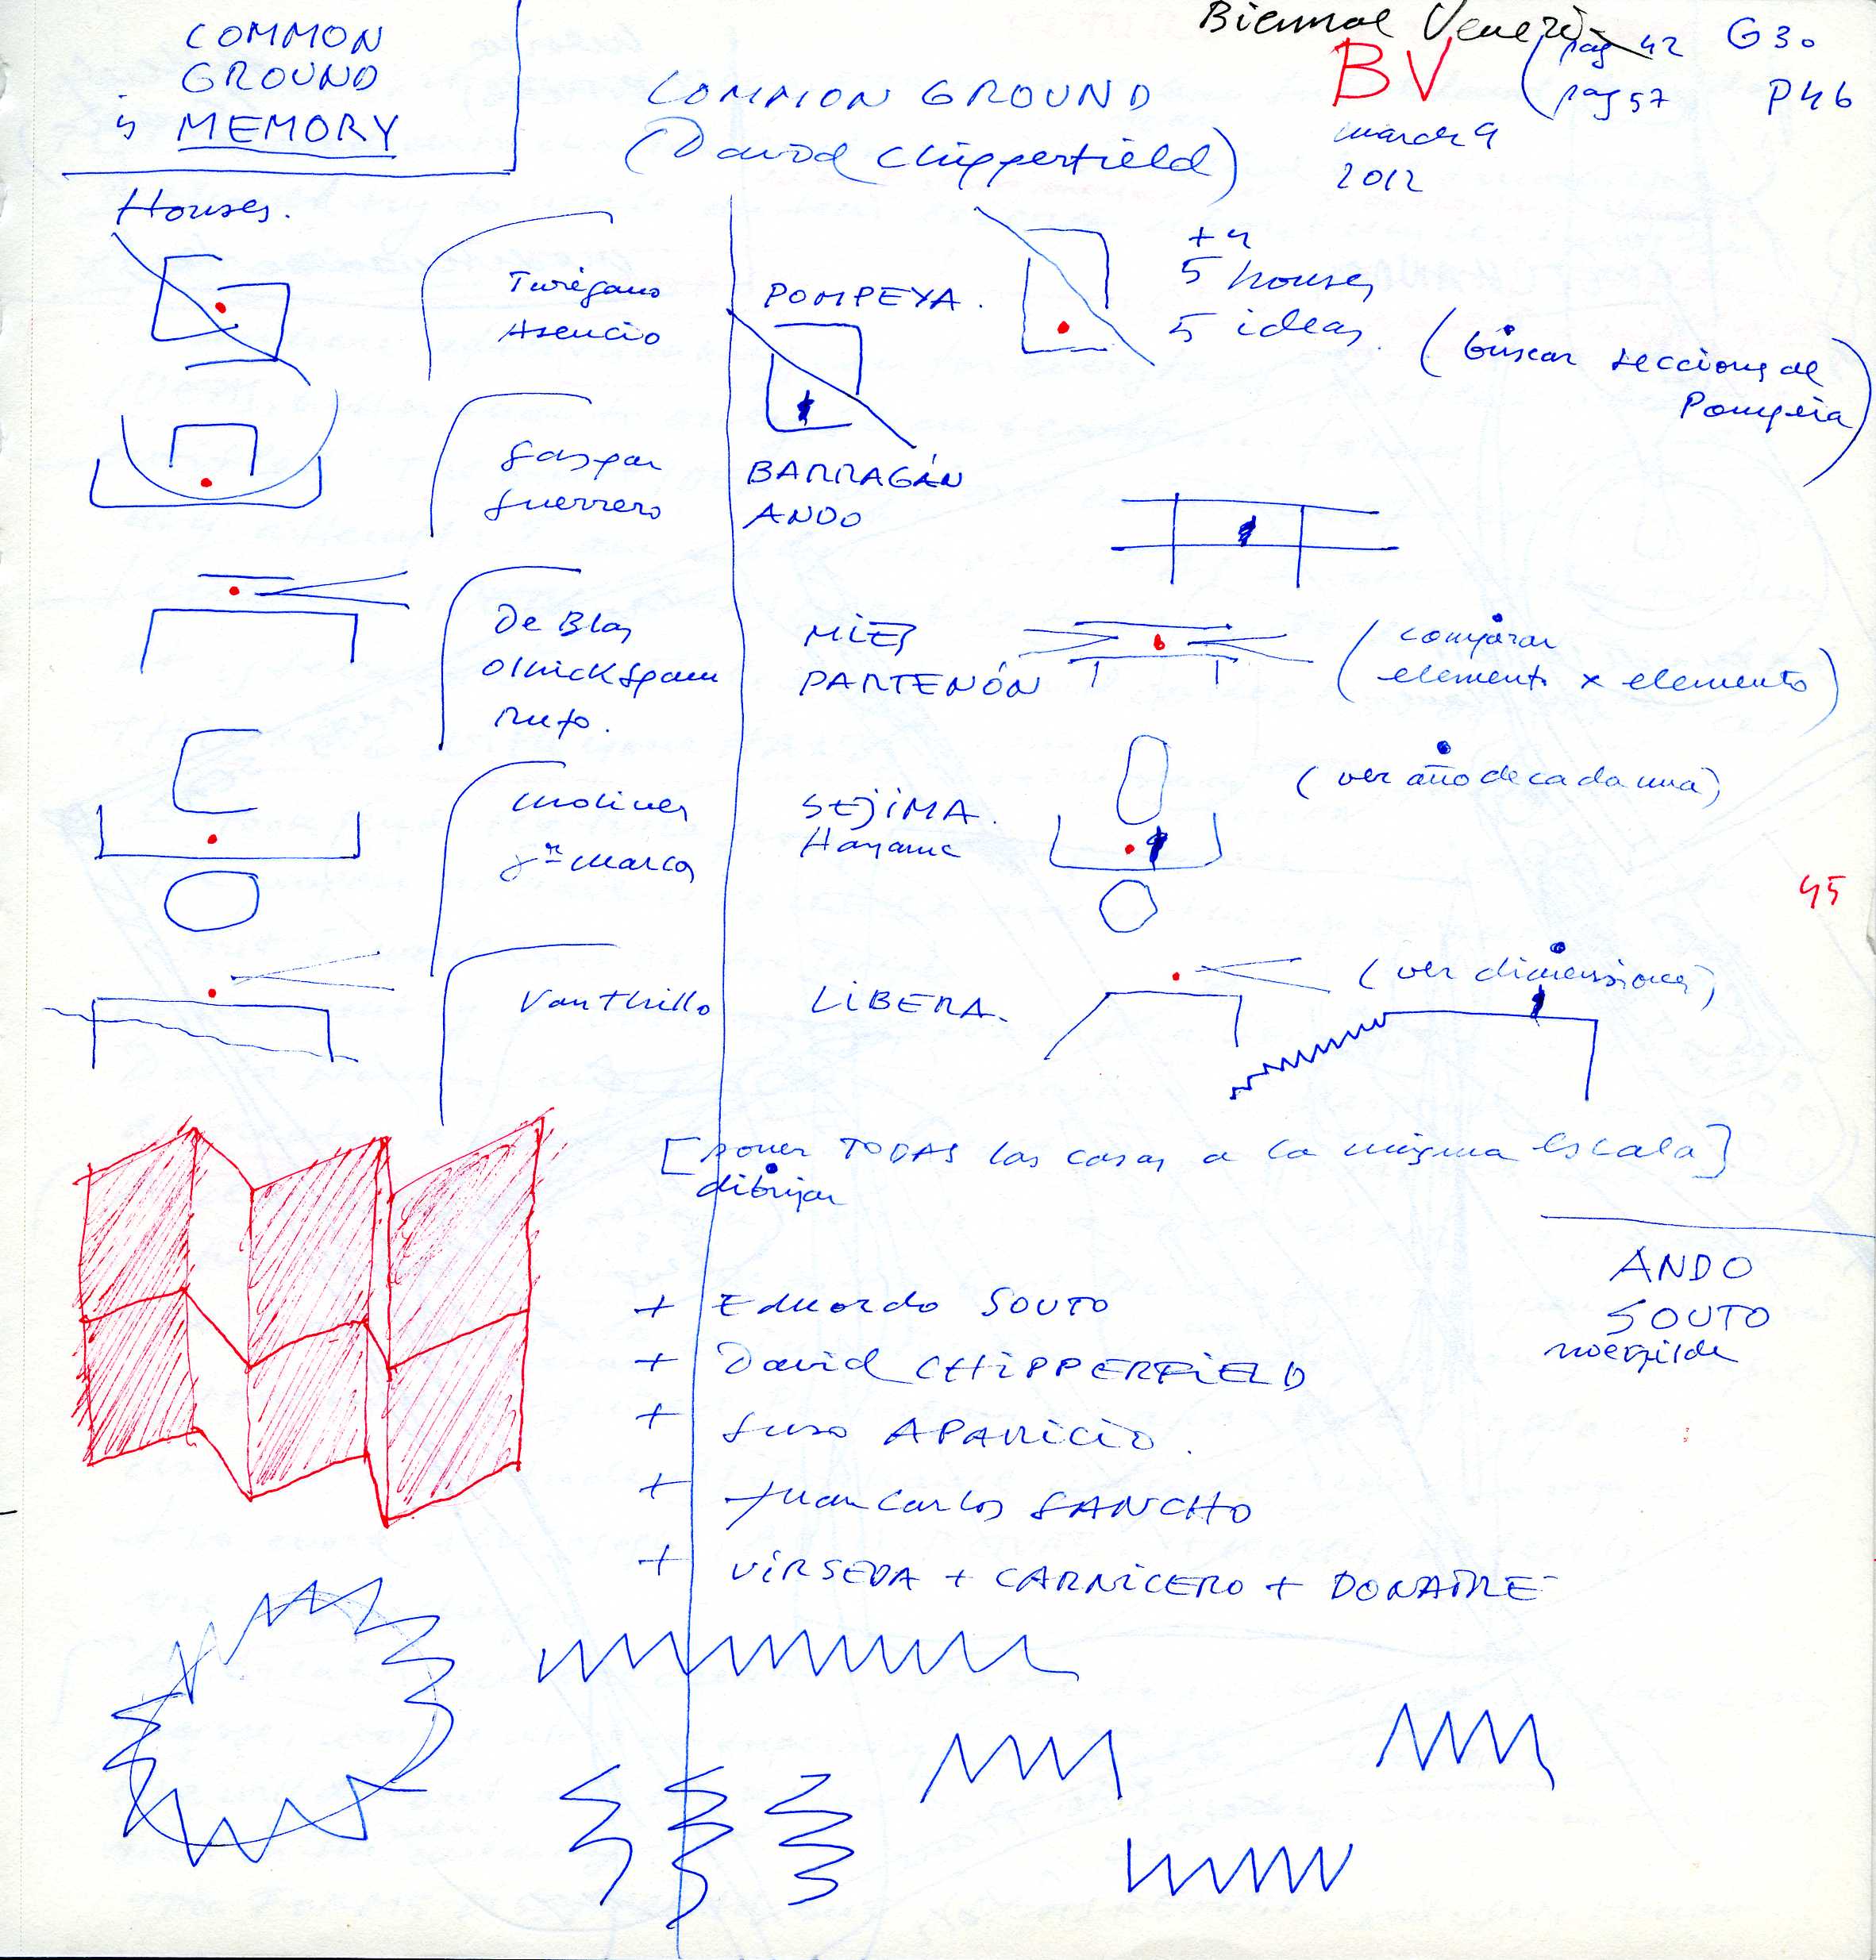 COMMON
GROUND
is MEMORY
Biennal Venezi
COMMON GROUND
(David Chipperfield)
BV
march 9
2012
(pag 42
pag 57
G30
P46
Houses.
Turégano
Asencio
POMPEYA.
+4
5 houses
5 ideas.
(buscar seccions de
Pompeia)
Gaspar
Guerrero
BARRAGÁN
ANDO
De Blas
Olnick Spanu
Rufo.
MIES
PARTENÓN
(comparar
elemento x elemento)
Moliner
Jn Marcos
SEJIMA.
Hayama
(ver año de cada una)
45
Van Thillo
LIBERA.
(ver dimensiones)
[poner TODAS las casas a la misma escala]
dibujar
ANDO
SOUTO
+ Eduardo SOUTO
+ David CHIPPERFIELD
+ Suso APARICIO.
+ Juan Carlos SANCHO
+ VIRSEDA + CARNICERO + DONAIRE